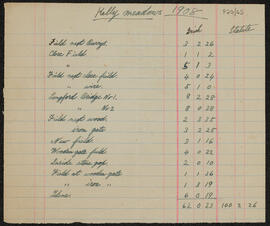 Kelly meadows 1908
Irish Statute
Field next 3 2 26
Close Field 1 2 22
" " 5 1 3
Field next close field. 4 0 24
" " wire. 5 0 1
Longford Bridge No 1. 9 2 28
" " No 2 8 0 28
Field next wood. 2 3 25
" " iron gate 3 3 25
New field. 3 1 16
Wooden gate field 4 3 22
Inside stone gap. 2 0 10
Field at wooden gate 1 1 16
" " iron " 1 3 19
6 0 19
62 0 23 100 2 26